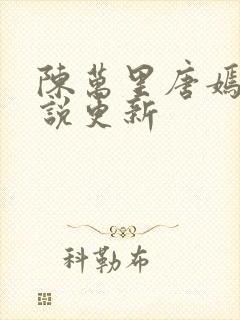 陳萬里唐嫣
說更新
科勒布